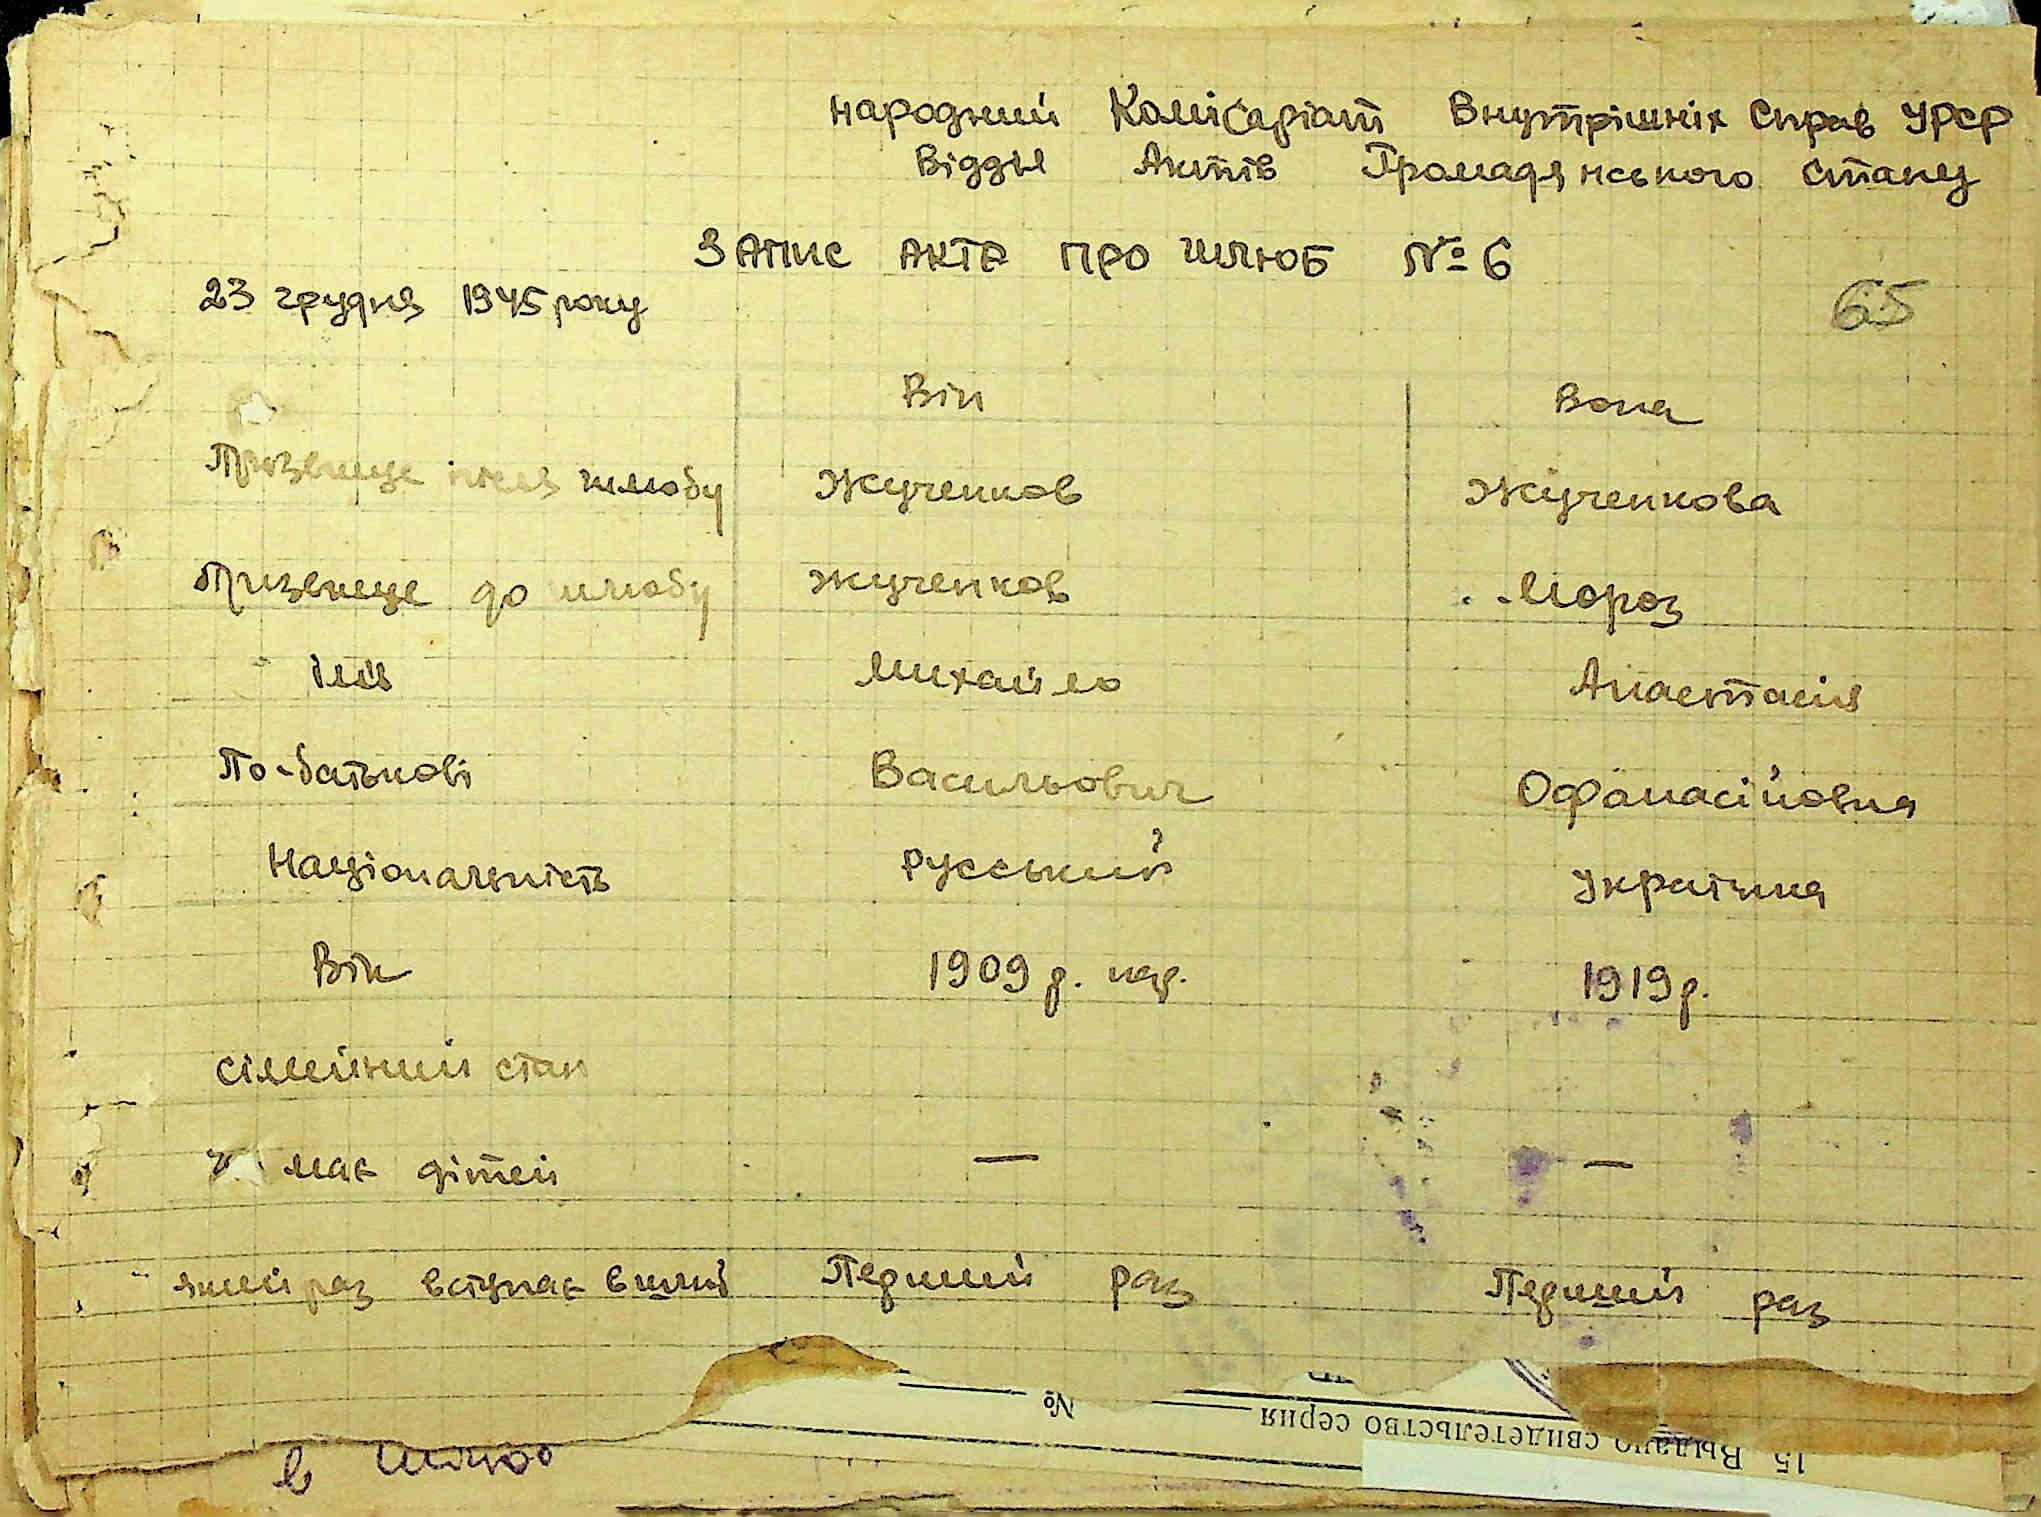 Народний Комісаріат Внутрішніх Справ УРСР
Відділ Актів Громадянського Стану
ЗАПИС АКТА ПРО ШЛЮБ № 6
23 грудня 1945 року
65
Він Вона
Призвище після шлюбу Жученков Жученкова
Призвище до шлюбу Жученков Мороз
Імя Михайло Анастасія
По-батькові Васильович Офанасійовна
Національність Русський Українка
Вік 1909 р. нар. 1919 р.
Сімейний стан
має дітей — —
який раз вступає в шлюб Перший раз Перший раз
15 Выдано свидетельство серия № 
в